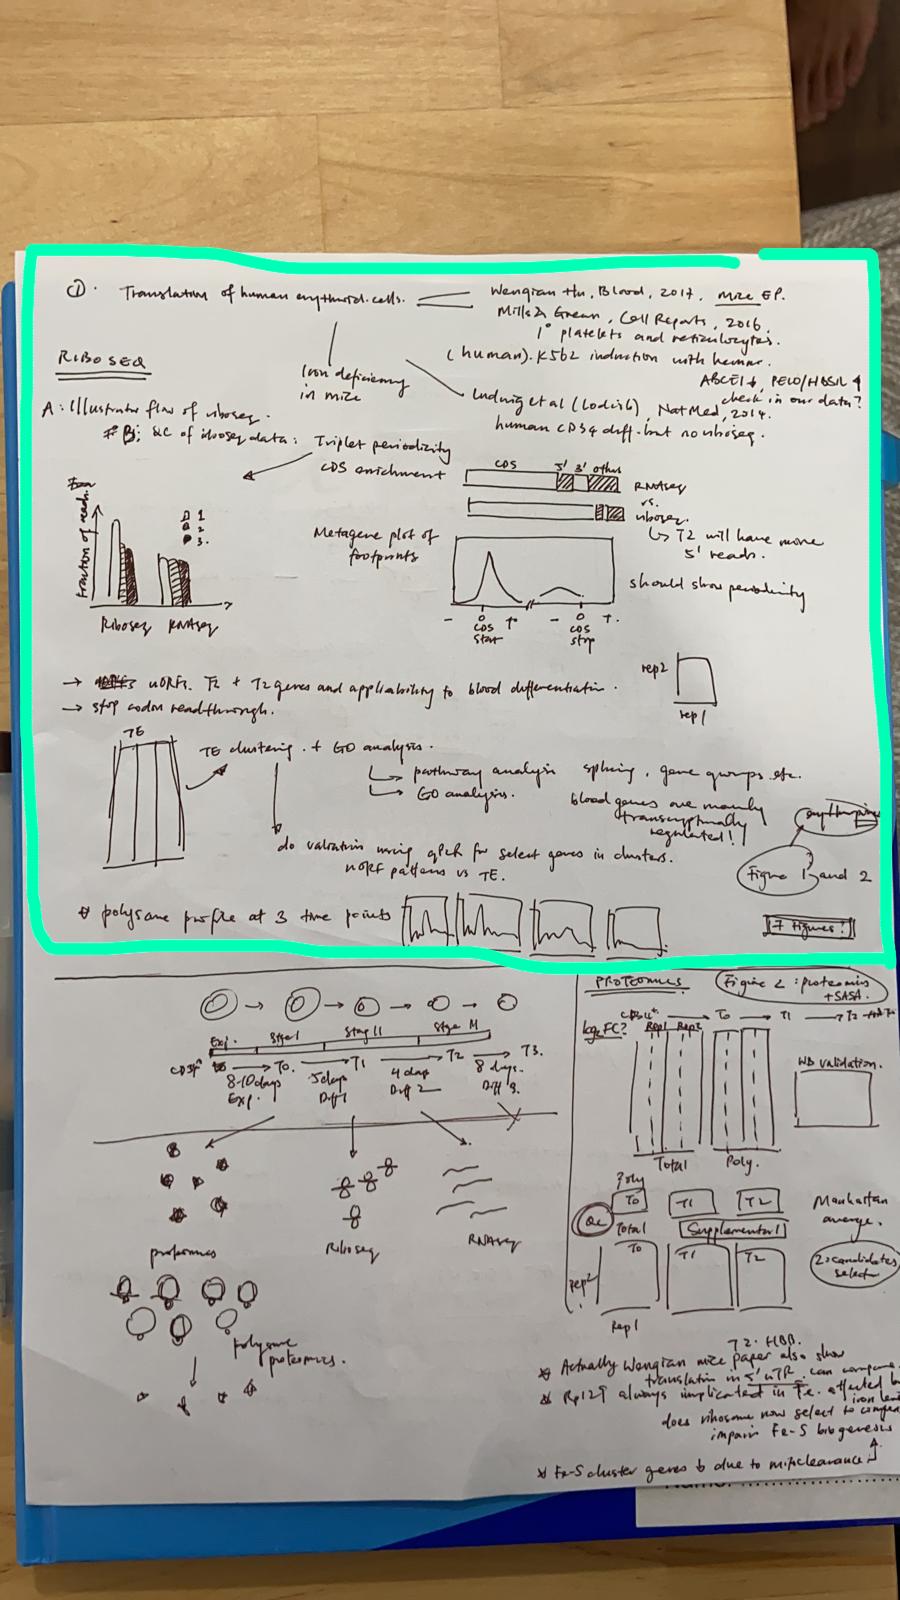 ①. Translation of human erythroid cells.
Wenqian Hu, Blood, 2017, mice EP.
Mills & Green, Cell Reports, 2016,
1° platelets and reticulocytes.
(human). K562 induction with hemin.
ABCE1↓, PELO/HBS1L ↑
check in our data?
Iron deficiency
in mice
Ludwig et al (Lodish), Nat Med, 2014.
human CD34 diff. but no riboseq.
RIBOSEQ
A: Illustrator flow of riboseq.
B: QC of riboseq data: Triplet periodicity
CDS enrichment
fraction of reads
1
2
3.
Riboseq RNAseq
CDS 5' 3' others
RNAseq
vs.
riboseq.
↳ T2 will have more
5' reads.
Metagene plot of
footprints
should show periodicity
- 0 + - 0 +.
CDS CDS
start stop
→ uORFs. T2 genes and applicability to blood differentiation.
→ stop codon readthrough.
rep2
rep1
TE
TE clustering. + GO analysis.
↳ pathway analysis splicing, gene groups etc.
↳ GO analysis.
blood genes are mainly
transcriptionally
regulated!
do validation using qPCR for select genes in clusters.
uORF patterns vs TE.
Figure 1 and 2
polysome profile at 3 time points
7 figures!
Exp. Stage I Stage II Stage III
T0. T1 T2 T3.
8-10 days 5 days 4 days 8 days.
Exp. Diff 1 Diff 2 Diff 3.
proteomics Riboseq RNAseq
polysome
proteomics.
PROTEOMICS
Figure 2: proteomics
+ SASA.
T0 → T1 → T2
log2FC? Rep1 Rep2
WB validation.
Total Poly.
Poly
T0 T1 T2
QC
Total
Supplemental 1
T0 T1 T2
rep2
Rep 1
Manhattan
average.
2: candidates
select
T2: HBB.
Actually Wenqian mice paper also show
translation in 5' UTR. can compare
always implicated in
iron
does ribosome now select to
impair Fe-S biogenesis
Fe-S cluster genes ↓ due to mitoclearance